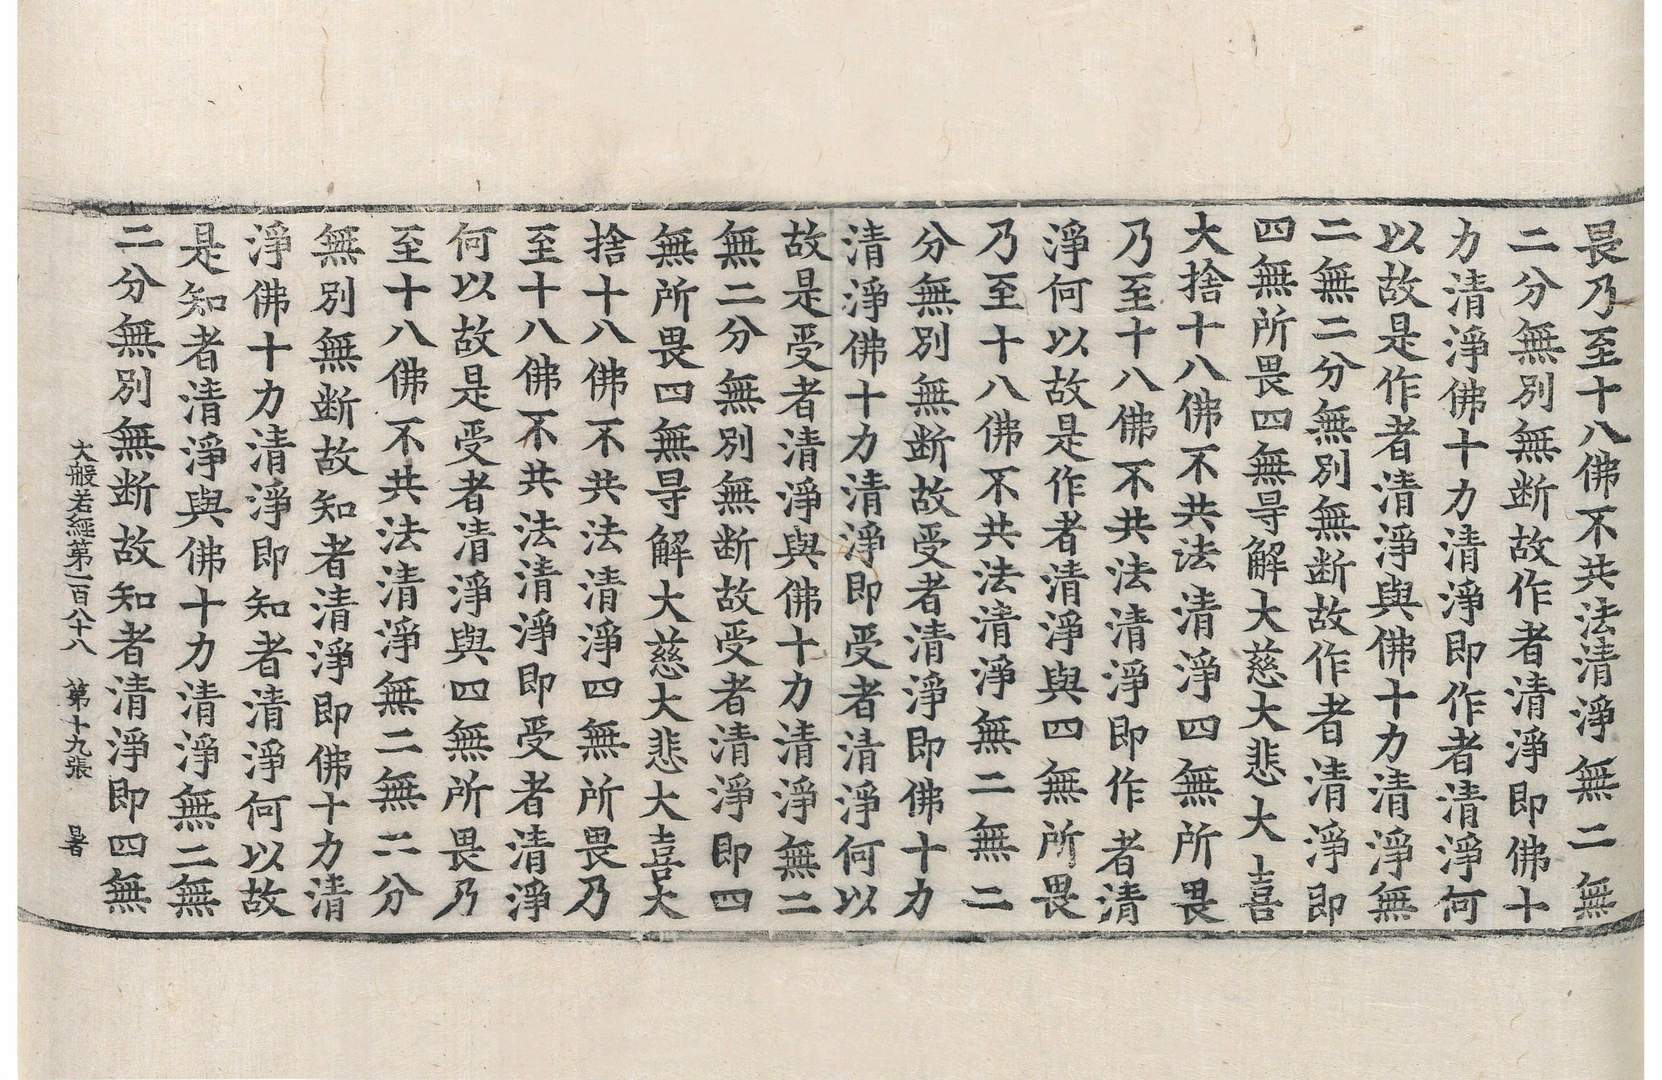 畏乃至十八佛不共法清淨無二無
二分無別無断故作者清淨即佛十
力清淨佛十力清淨即作者清淨何
以故是作者清淨與佛十力清淨無
二無二分無別無断故作者清淨即
四無所畏四無㝵解大慈大悲大喜
大捨十八佛不共法清淨四無所畏
乃至十八佛不共法清淨即作者清
淨何以故是作者清淨與四無所畏
乃至十八佛不共法清淨無二無二
分無別無断故受者清淨即佛十力
清淨佛十力清淨即受者清淨何以
故是受者清淨與佛十力清淨無二
無二分無別無断故受者清淨即四
無所畏四無㝵解大慈大悲大喜大
捨十八佛不共法清淨四無所畏乃
至十八佛不共法清淨即受者清淨
何以故是受者清淨與四無所畏乃
至十八佛不共法清淨無二無二分
無別無断故知者清淨即佛十力清
淨佛十力清淨即知者清淨何以故
是知者清淨與佛十力清淨無二無
二分無別無断故知者清淨即四無
大般若經第一百八十八 第十九張 暑